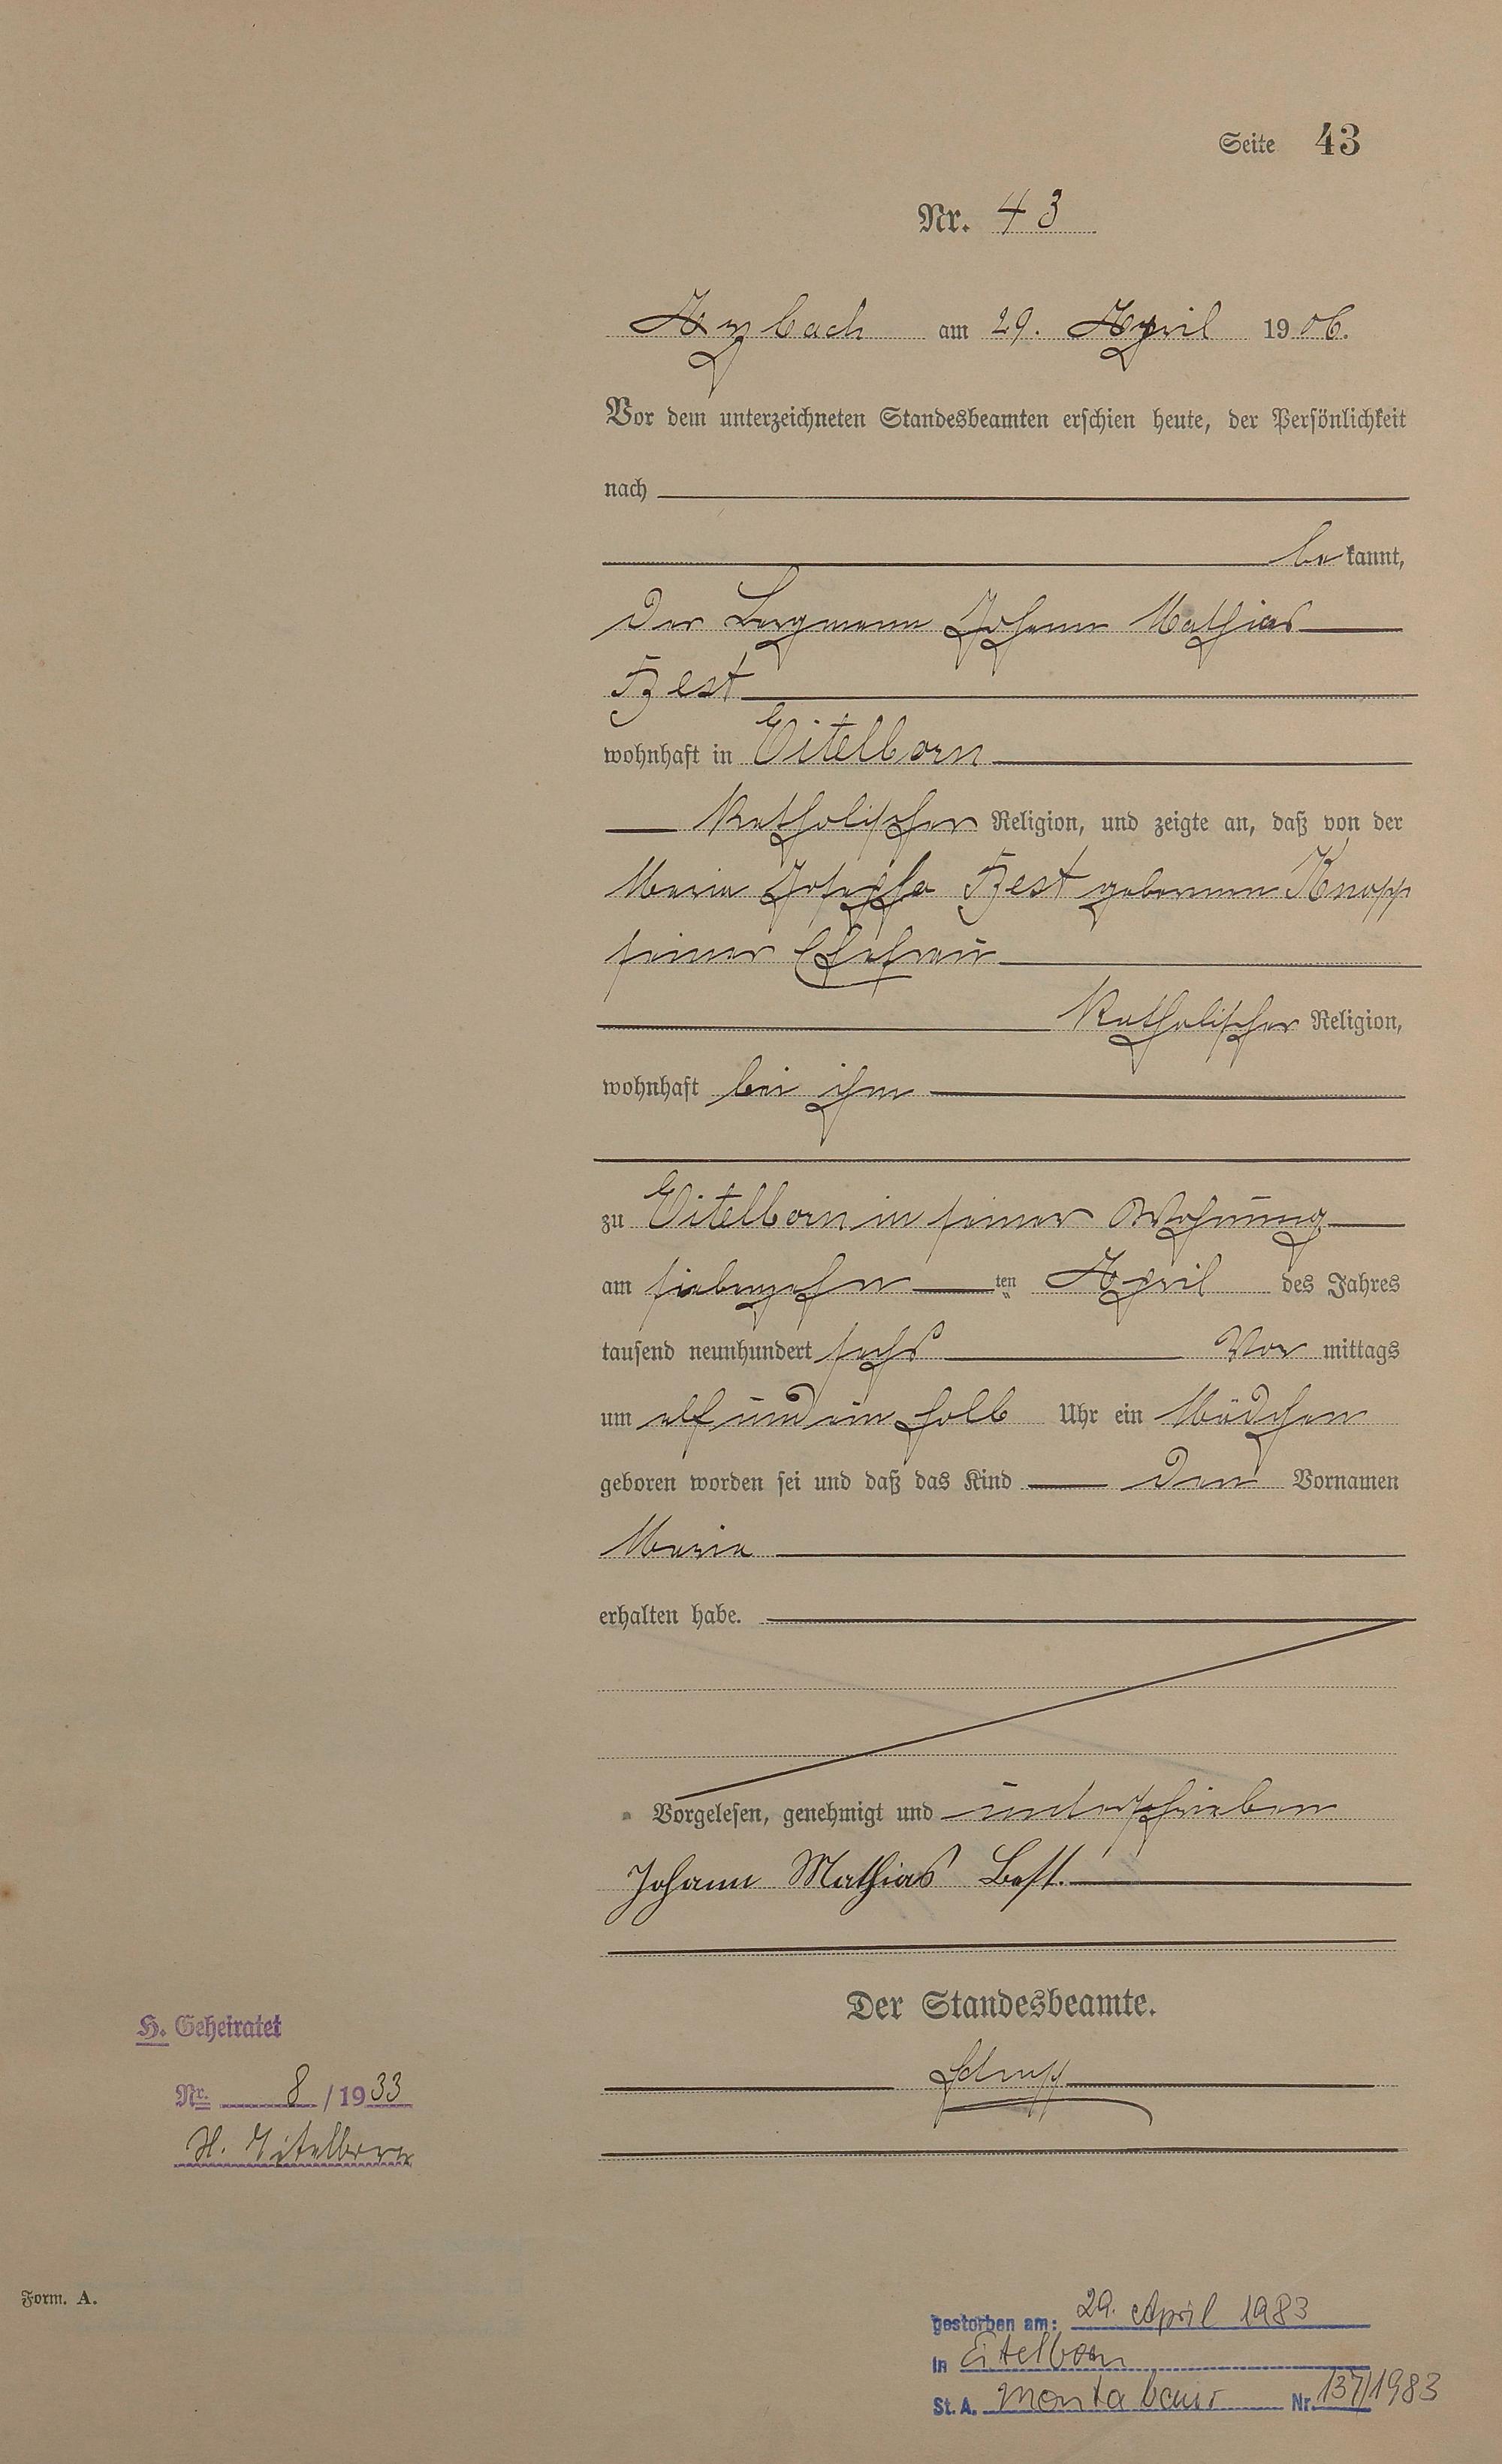 Seite 43
Nr. 43
Arzbach am 29. April 1906.
Vor dem unterzeichneten Standesbeamten erschien heute, der Persönlichkeit
nach
bekannt,
der Bergmann Johann Mathias
Best
wohnhaft in Eitelborn
katholischer Religion, und zeigte an, daß von der
Maria Josepha Best geborenen Knopp
seiner Ehefrau
katholischer Religion,
wohnhaft bei ihm
zu Eitelborn in seiner Wohnung
am siebenzehnten April des Jahres
tausend neunhundert sechs Vormittags
um elf und ein halb Uhr ein Mädchen
geboren worden sei und daß das Kind den Vornamen
Maria
erhalten habe.
Vorgelesen, genehmigt und unterschrieben
Johann Mathias Best.
Der Standesbeamte.
H. Geheiratet
Nr. 8/1933
St. Eitelborn
Form. A.
gestorben am: 29. April 1983
in Eitelborn
St. A. Montabaur Nr. 137/1983